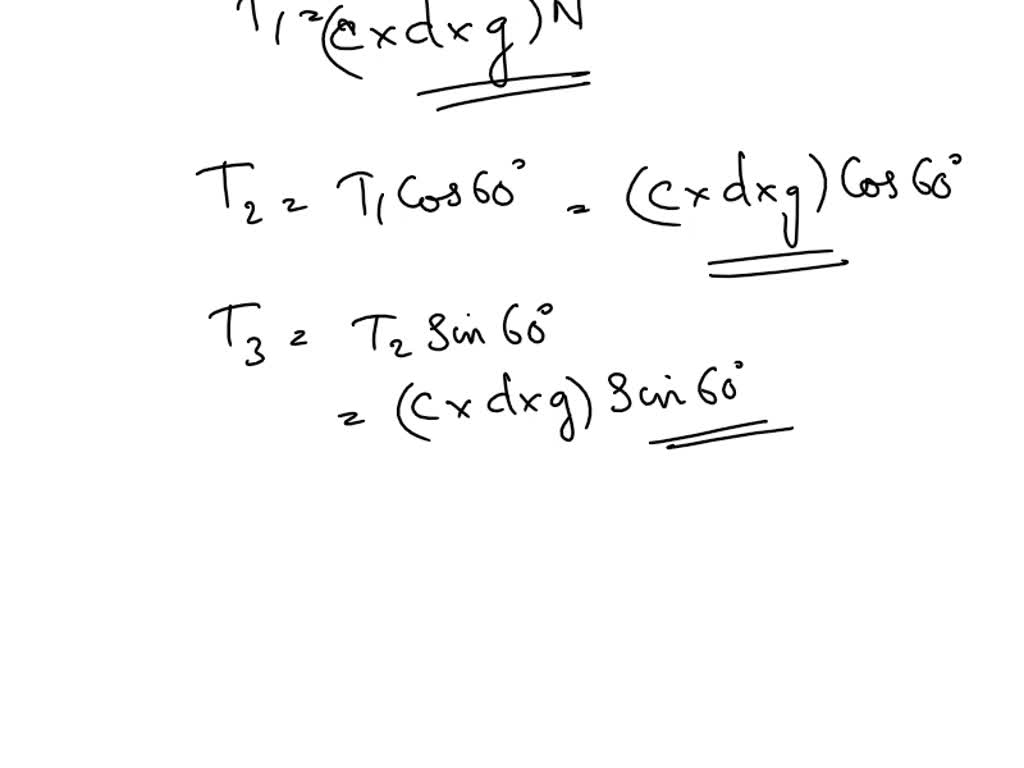 T₁ = (c x d x g) N
T₂ = T₁ Cos 60° = (c x d x g) Cos 60°
T₃ = T₂ Sin 60°
= (c x d x g) Sin 60°